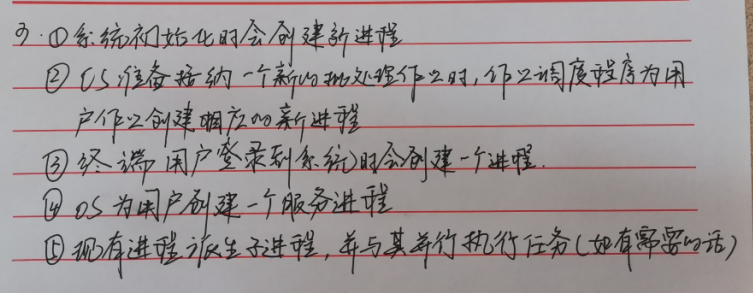 3. ①系统初始化时会创建新进程
②OS准备接纳一个新的批处理作业时,作业调度程序为用
户作业创建相应的新进程
③终端用户登录到系统时会创建一个进程.
④OS为用户创建一个服务进程
⑤现有进程派生子进程,并与其并行执行任务(如有需要的话)